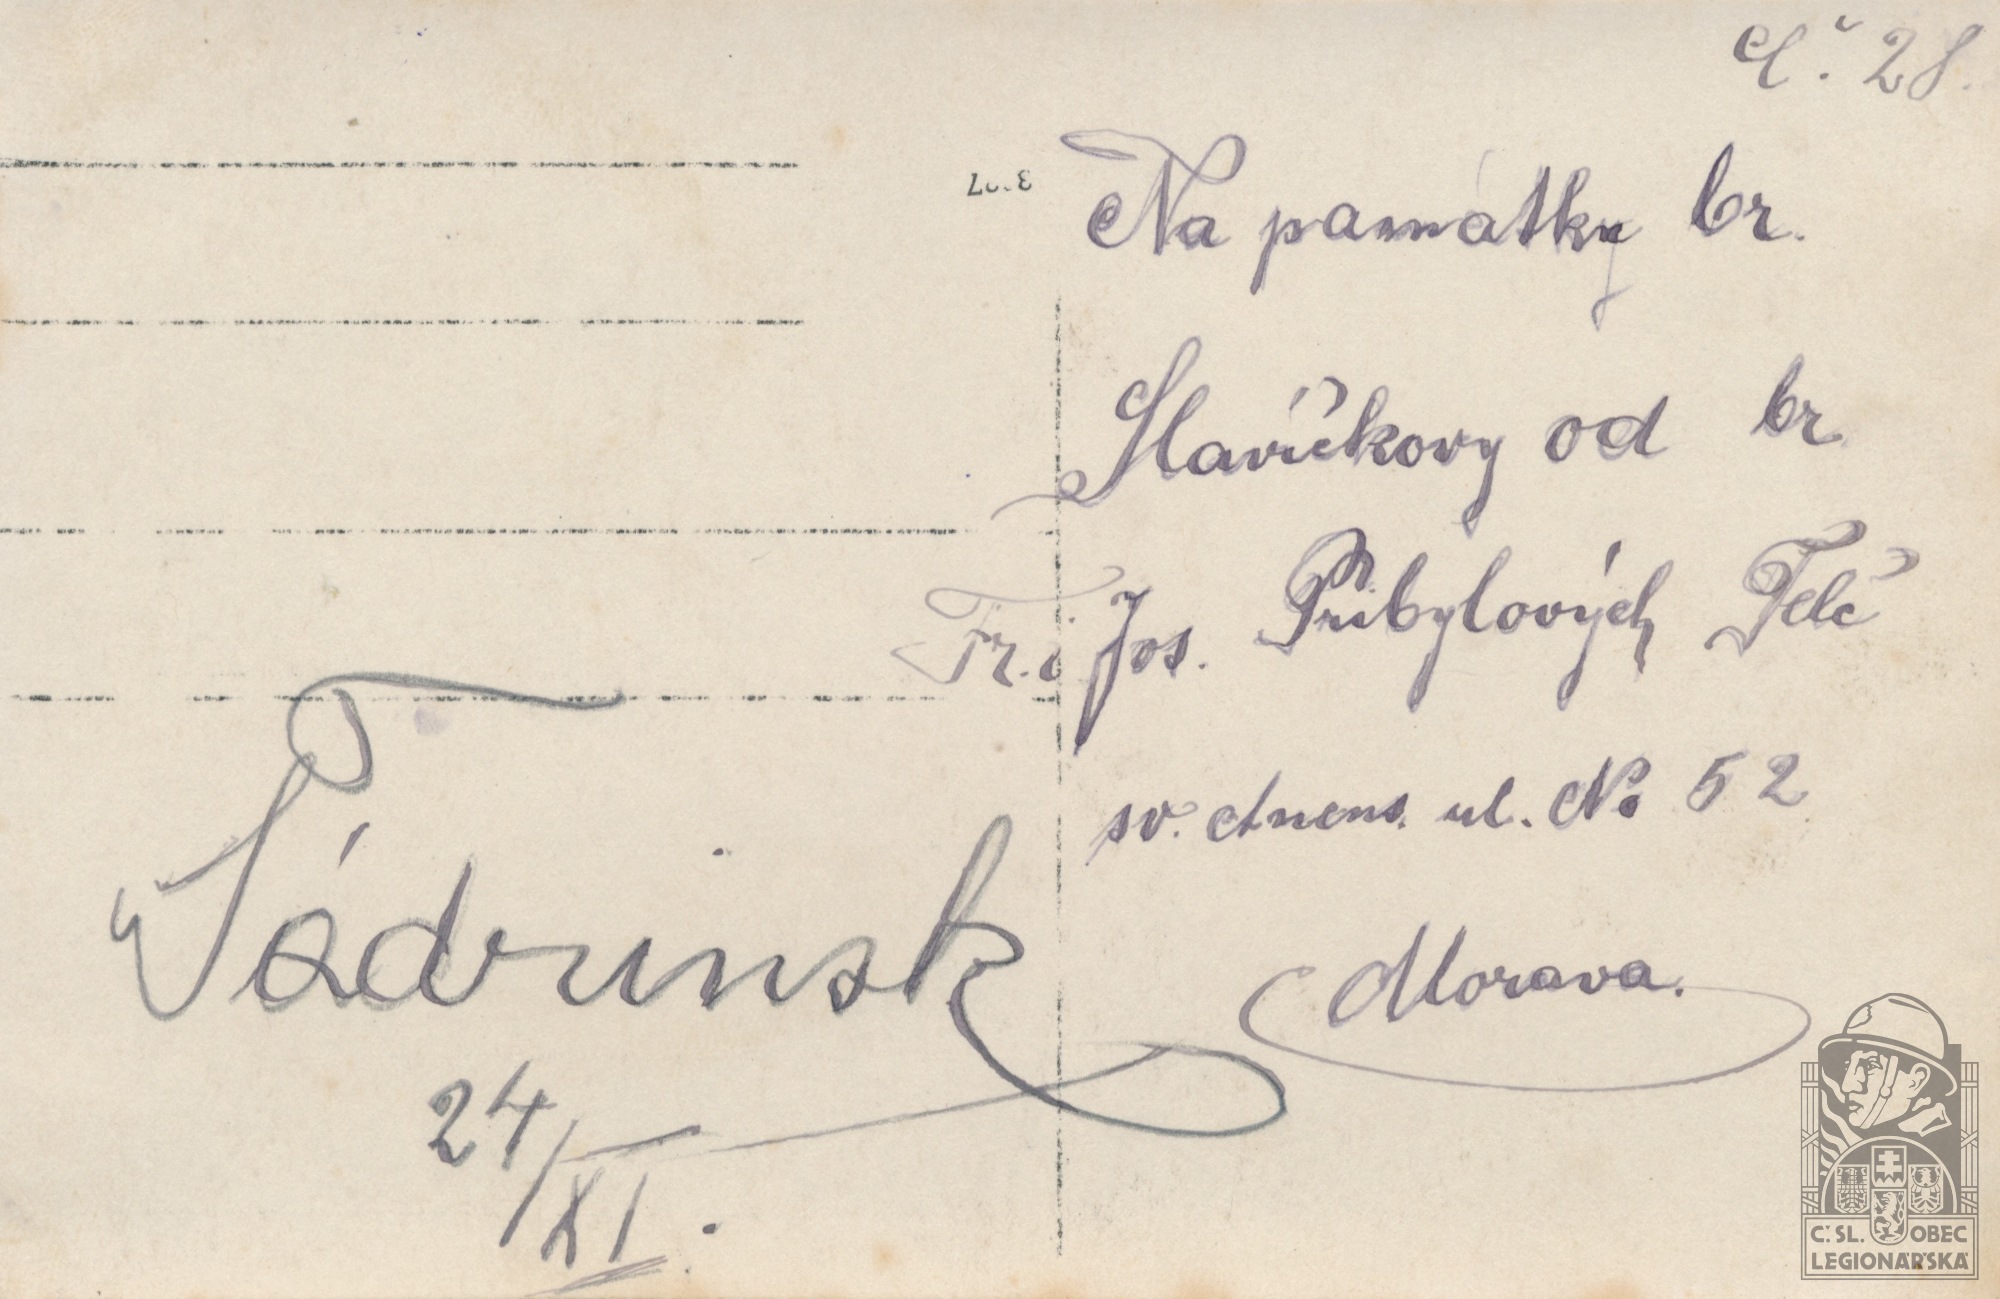 č. 28.
Na památky br.
Slavíčkovy od br.
Fr. i Jos. Přibylových Telč
sv. Anens. ul. No 52
Morava.
Šádrinsk
24/XI.
Č.SL. OBEC
LEGIONÁŘSKÁ